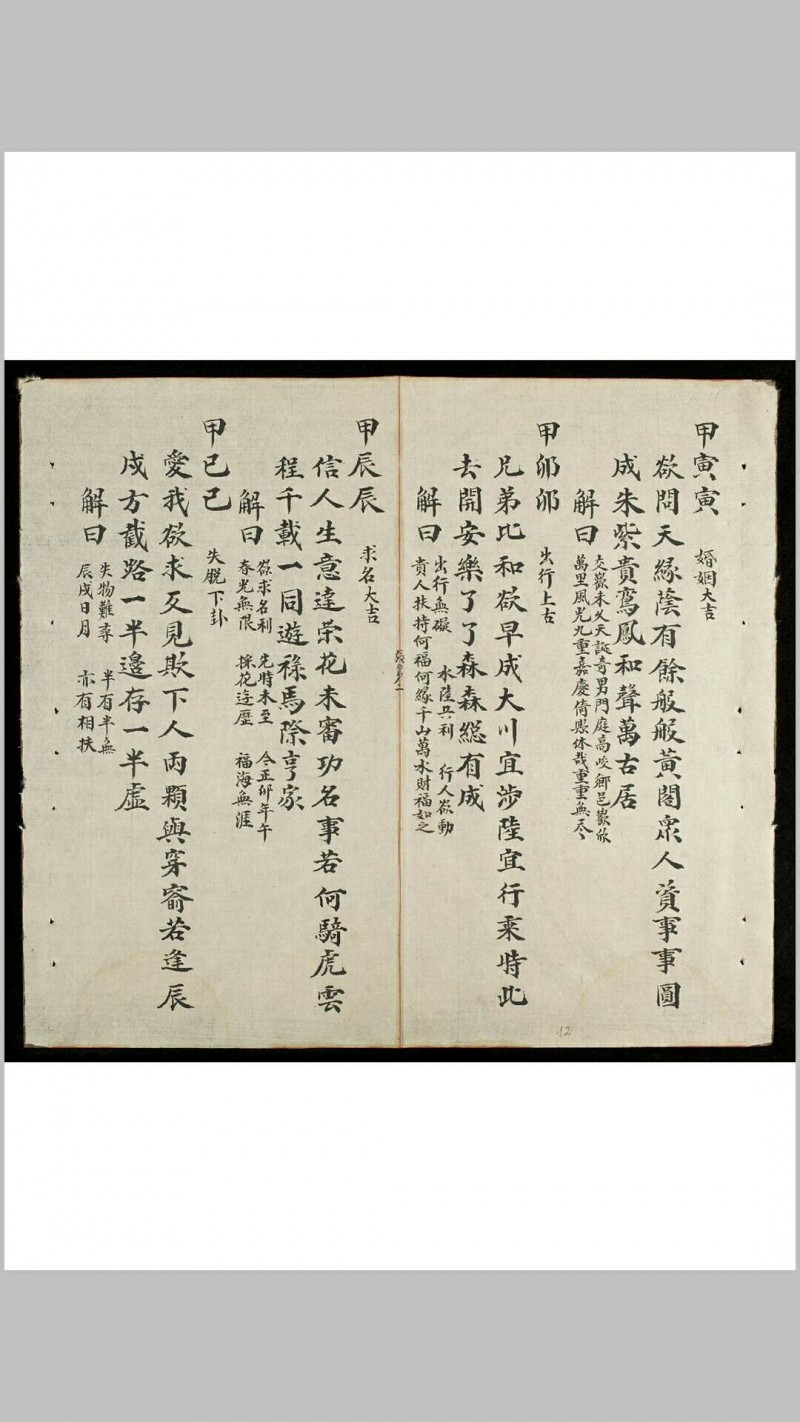 甲寅寅 婚姻大吉
欲問天緣蔭有餘般般黃閣衆人資事事圖
成朱紫貴鸞鳳和聲萬古居
解曰
交歡未久天誕奇男門庭高峻鄉邑歡欣
萬里風光九重嘉慶脩熙休哉重重無尽
甲夘夘 出行上吉
兄弟比和欲早成大川宜涉陸宜行乘時此
去開安樂了了森森緫有成
解曰
出行無礙 水陸兵利 行人欲動
貴人扶持何福何緣千山萬水財福如之
甲辰辰 求名大吉
信人生意達荣花未審功名事若何騎虎雲
程千載一同遊祿馬際亨家
解曰
欲求名利 先時未至 今正夘年午
春光無限 採花逕歷 福海無涯
甲已已 失脫下卦
愛我欲求反見欺下人兩顆與穿窬若逢辰
戍方截路一半邊存一半虛
解曰
失物難尋 半有半無
辰戍日月 亦有相扶
12